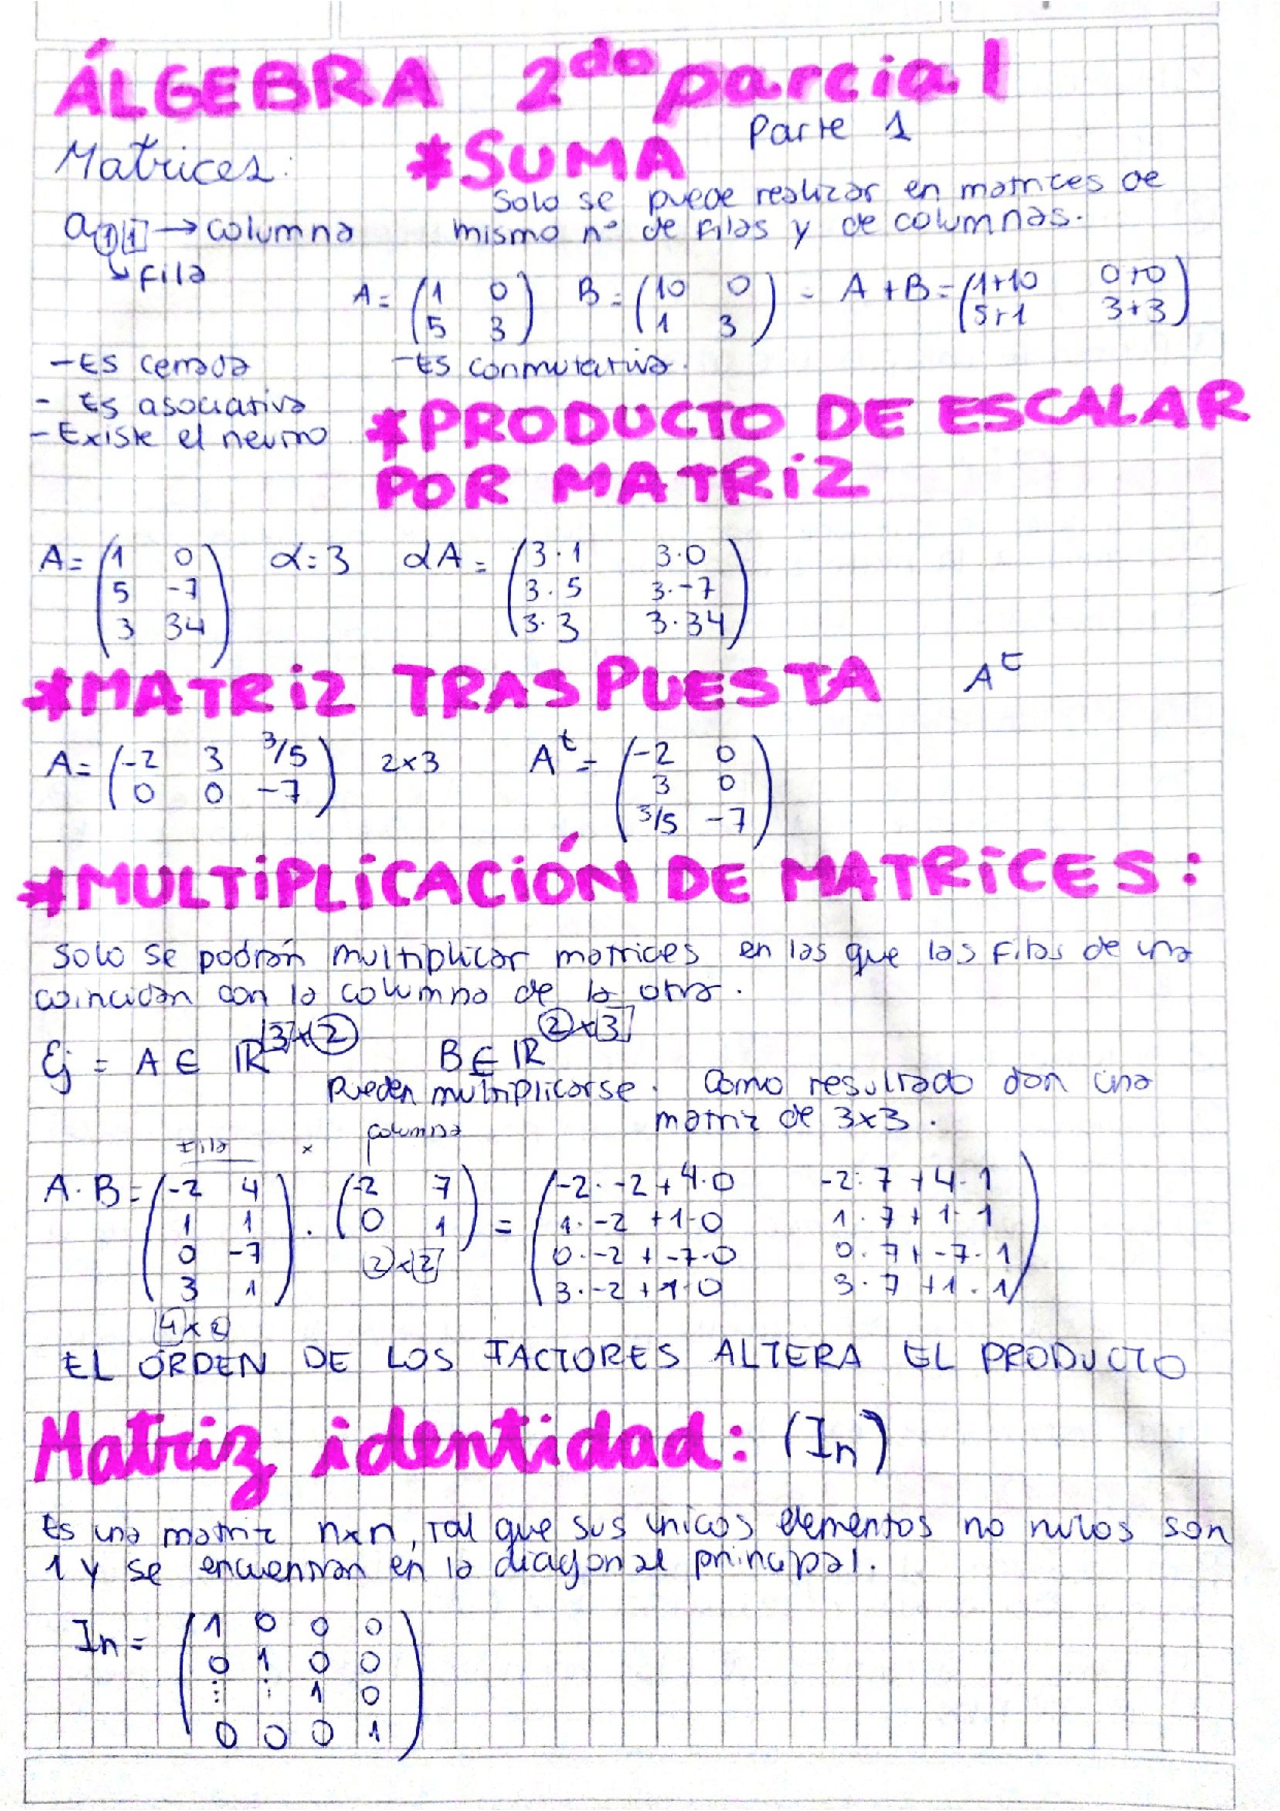 ÁLGEBRA 2do parcial
Parte 1
Matrices:
*SUMA
Solo se puede realizar en matrices de
mismo nº de filas y de columnas.
a11 → columna
↳ fila
A = (1 0 / 5 3) B = (10 0 / 1 3) - A + B = (1+10 0+0 / 5+1 3+3)
- Es cerrada
- Es conmutativa.
- Es asociativa
- Existe el neutro
*PRODUCTO DE ESCALAR
POR MATRIZ
A = (1 0 / 5 -7 / 3 34) α = 3 αA = (3·1 3·0 / 3·5 3·-7 / 3·3 3·34)
*MATRIZ TRASPUESTA A^t
A = (-2 3 3/5 / 0 0 -7) 2x3 A^t = (-2 0 / 3 0 / 3/5 -7)
*MULTIPLICACIÓN DE MATRICES:
Solo se podrán multiplicar matrices en las que las filas de una
coincidan con la columna de la otra.
Ej = A ∈ IR^3x2 B ∈ IR^2x3
Pueden multiplicarse. Como resultado dan una
matriz de 3x3.
Fila x columna
A·B = (-2 4 / 1 1 / 0 -7 / 3 1) · (-2 7 / 0 1) = (-2·-2+4·0 -2·7+4·1 / 1·-2+1·0 1·7+1·1 / 0·-2+-7·0 0·7+-7·1 / 3·-2+1·0 3·7+1·1)
2x2
4x2
EL ORDEN DE LOS FACTORES ALTERA EL PRODUCTO
Matriz identidad: (In)
Es una matriz nxn, tal que sus unicos elementos no nulos son
1 y se encuentran en la diagonal principal.
In = (1 0 0 0 / 0 1 0 0 / ⋮ ⋮ 1 0 / 0 0 0 1)